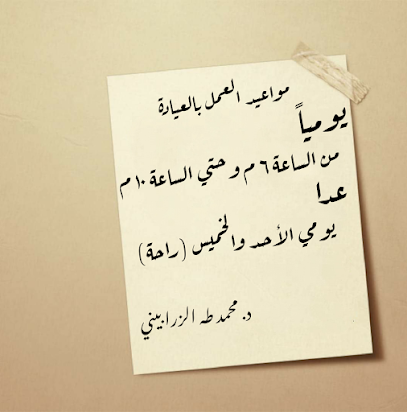 مواعيد العمل بالعيادة
يومياً
من الساعة ٦ م و حتي الساعة ١٠ م
عدا
يومي الأحد والخميس (راحة)
د. محمد طه الزرابيني